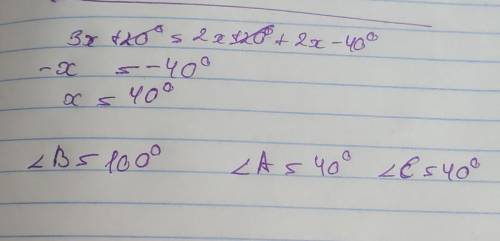 3x + 20° = 2x + 20° + 2x - 40°
-x = -40°
x = 40°
∠B = 100° ∠A = 40° ∠C = 40°